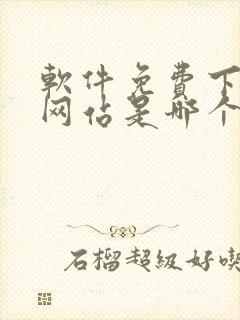 軟件免費下
网站是哪个
石榴超級好喫